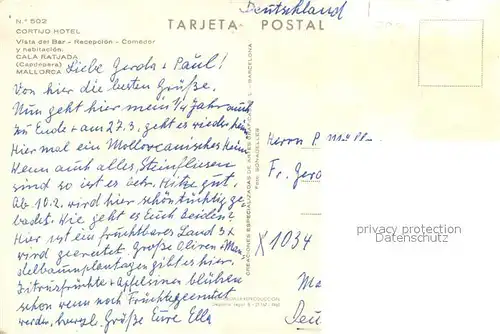 Deutschland
TARJETA POSTAL
N.º 502
CORTIJO HOTEL
Vista del Bar - Recepción - Comedor
y habitación.
CALA RATJADA
(Capdepera)
MALLORCA
Liebe Gerda + Paul!
Von hier die besten Grüße.
Nun geht hier mein 1/4 Jahr auch
zu Ende + am 27.3. geht es wieder heim
Hier mal ein Mallorcanisches Heim
Wenn auch alles Steinfliesen
sind so ist es betr. Hitze gut.
Ab 10.2. wird hier schon tüchtig ge-
badet. Wie geht es Euch beiden?
Hier ist ein fruchtbares Land 3x
wird geerntet. Große Oliven + Man
delbaumplantagen gibt es hier.
Zitrusfrüchte + Apfelsinen blühen
schon wenn noch Früchte geerntet
werden, herzl. Grüße Eure Ella
Herrn P.
Fr. Gerd
X1034
CREACIONES ESPECIALIZADAS DE ARTES GRAFICAS - BARCELONA
Foto: BOHADELLES
Urheberrechtlich geschützt
Datenschutz